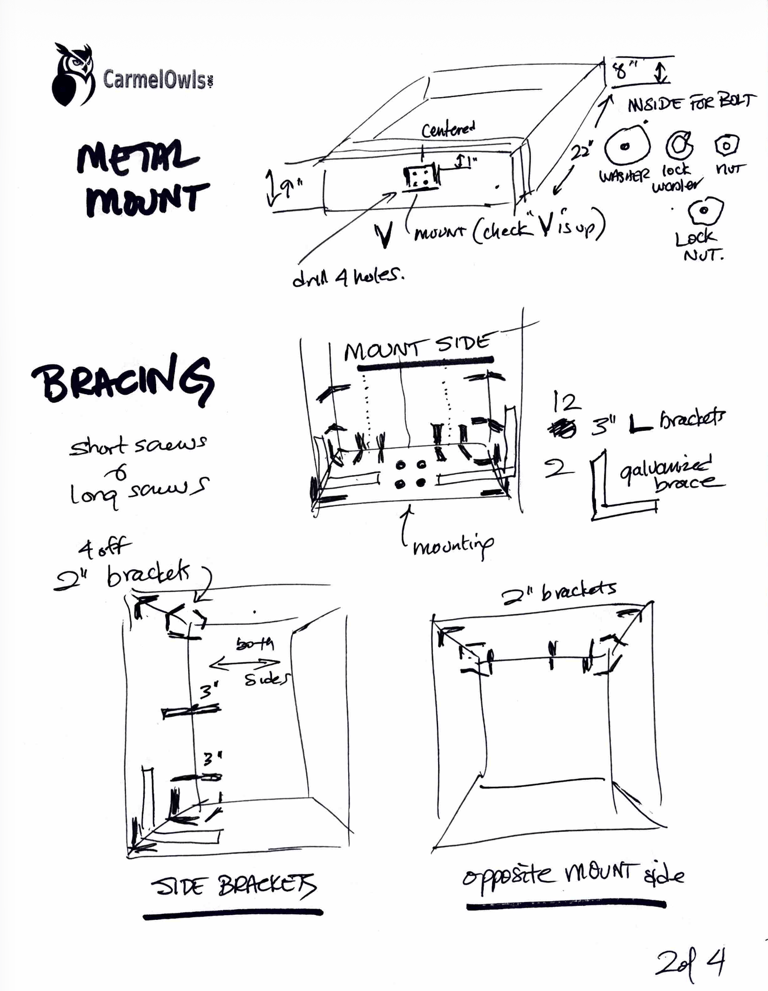 CarmelOwls
METAL
MOUNT
8"
INSIDE FOR BOLT
Centered
1"
22"
WASHER
lock
washer
NUT
LOCK
NUT.
9"
V
MOUNT (check "V" is up)
drill 4 holes.
BRACING
MOUNT SIDE
short screws
long screws
12
3" L brackets
2
galvanized
brace
mounting
4 off
2" brackets
both
sides
3"
3"
SIDE BRACKETS
2" brackets
opposite MOUNT side
2 of 4